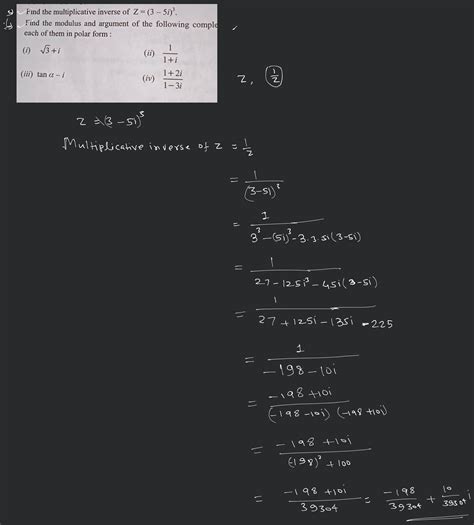 Find the multiplicative inverse of Z = (3 – 5i)³.
Find the modulus and argument of the following comple
each of them in polar form :
(i) √3 + i
(ii) 1/(1+i)
(iii) tan α – i
(iv) (1+2i)/(1–3i)
z, (1/z)
z = (3 – 5i)³
Multiplicative inverse of z = 1/z
= 1/(3–5i)³
= 1/(3³ – (5i)³ – 3.3.5i(3–5i))
= 1/(27 – 125i³ – 45i(3–5i))
= 1/(27 + 125i – 135i – 225)
= 1/(–198 – 10i)
= (–198 + 10i)/((–198 – 10i)(–198 + 10i))
= (–198 + 10i)/((198)² + 100)
= (–198 + 10i)/39304 = –198/39304 + 10/39304 i